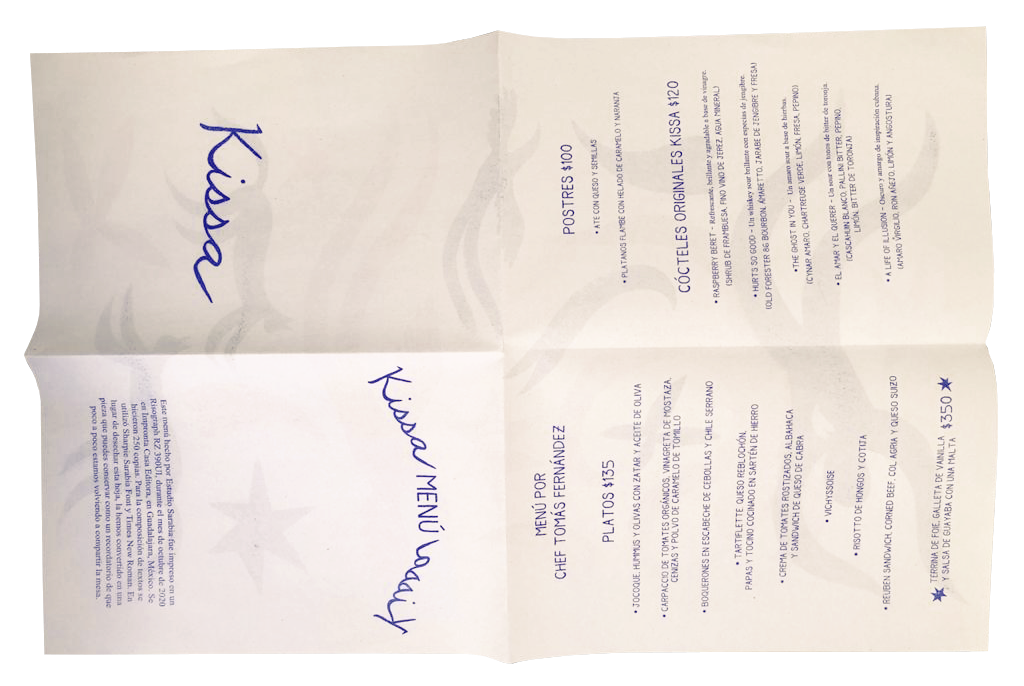 Kissa
Kissa MENÚ
Este menú hecho por Estudio Sarabia fue impreso en un
Risograph RZ 390UI, durante el mes de octubre de 2020
en Impronta Casa Editora, en Guadalajara, México. Se
hicieron 250 copias. Para la composición de textos se
utilizó Sharpie Sarabia Font y Times New Roman. En
lugar de desechar esta hoja, la hemos convertido en una
pieza que puedes conservar como un recordatorio de que
poco a poco estamos volviendo a compartir la mesa.
MENÚ POR
CHEF TOMÁS FERNÁNDEZ
PLATOS $135
• JOCOQUE, HUMMUS Y OLIVAS CON ZATAR Y ACEITE DE OLIVA
• CARPACCIO DE TOMATES ORGÁNICOS, VINAGRETA DE MOSTAZA,
CENIZAS Y POLVO DE CARAMELO DE TOMILLO
• BOQUERONES EN ESCABECHE DE CEBOLLAS Y CHILE SERRANO
• TARTIFLETTE QUESO REBLOCHÓN,
PAPAS Y TOCINO COCINADO EN SARTÉN DE HIERRO
• CREMA DE TOMATES ROSTIZADOS, ALBAHACA
Y SANDWICH DE QUESO DE CABRA
• VICHYSSOISE
• RISOTTO DE HONGOS Y COTIJA
• REUBEN SANDWICH, CORNED BEEF, COL AGRIA Y QUESO SUIZO
TERRINA DE FOIE, GALLETA DE VAINILLA
Y SALSA DE GUAYABA CON UNA MALTA $350
POSTRES $100
• ATE CON QUESO Y SEMILLAS
• PLATANOS FLAMBE CON HELADO DE CARAMELO Y NARANZA
CÓCTELES ORIGINALES KISSA $120
• RASPBERRY BERET - Refrescante, brillante y agradable a base de vinagre.
(SHRUB DE FRAMBUESA, FINO VINO DE JEREZ, AGUA MINERAL)
• HURTS SO GOOD - Un whiskey sour brillante con especias de jengibre.
(OLD FORESTER 86 BOURBON, AMARETTO, JARABE DE JENGIBRE Y FRESA)
• THE GHOST IN YOU - Un amaro sour a base de hierbas.
(CYNAR AMARO, CHARTREUSE VERDE, LIMÓN, FRESA, PEPINO)
• EL AMAR Y EL QUERER - Un sour con tonos de bitter de toronja.
(CASCAHUIN BLANCO, PALLINI BITTER, PEPINO,
LIMÓN, BITTER DE TORONJA)
• A LIFE OF ILLUSION - Oscuro y amargo de inspiración cubana.
(AMARO VIRGILIO, RON AÑEJO, LIMÓN Y ANGOSTURA)